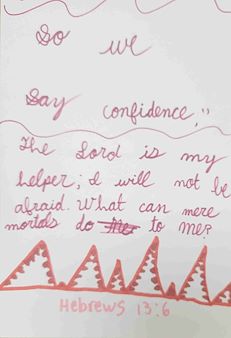 So we
Say confidence,"
The Lord is my
helper; I will not be
afraid. What can mere
mortals do to me?
Hebrews 13:6